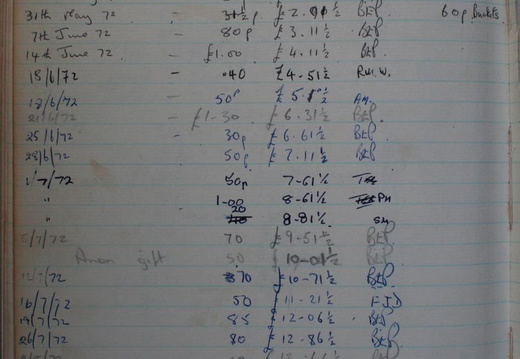 31th May 72 - 31½p £2.91½ BEP 60p buckets
7th June 72 - 80p £3.11½ BEP
14th June 72 - £1.00 £4.11½ BEP
18/6/72 - .40 £4.51½ R.W.W.
18/6/72 - 50p £5.01½ AM.
21/6/72 - £1-30 £6.31½ BEP
25/6/72 - 30p £6.61½ BEP
28/6/72 50p £7.11½ BEP
2/7/72 50p 7-61½
" 1-00 8-61½ PH
" - 20 8-81½ SM
5/7/72 70 £9-51½ BEP
Anon gift 50 10-01½ BEP
12/7/72 70 £10-71½ BEP
16/7/72 50 11-21½ FJD
19/7/72 85 12-06½ BEP
26/7/72 80 12-86½ BEP